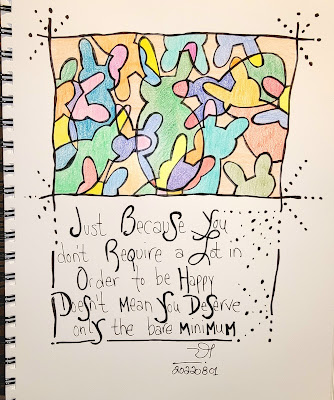 Just Because You
don't Require a Lot in
Order to be Happy
Doesn't mean You Deserve
only the bare MINIMUM
20220801